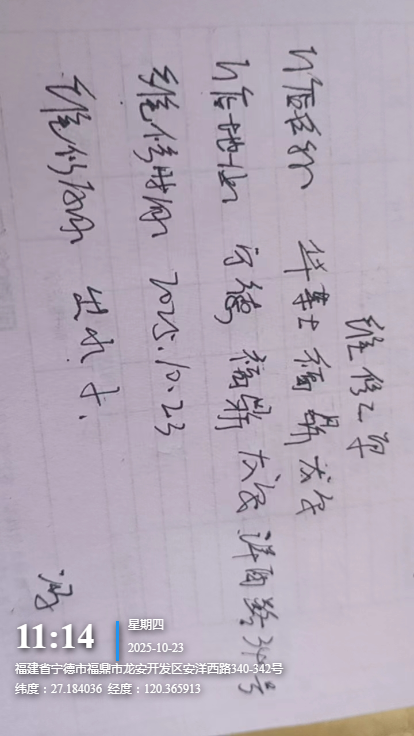 维修工单
门店名称 华莱士福鼎龙安
门店地址 宁德福鼎龙安洋西路340号
维修时间 2025.10.23
维修内容 出水小.
11:14
星期四
2025-10-23
福建省宁德市福鼎市龙安开发区安洋西路340-342号
纬度：27.184036 经度：120.365913